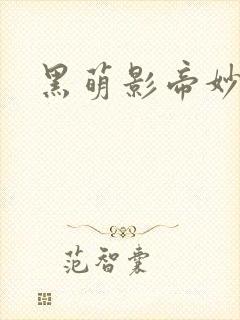 黑萌影帝妙
范智囊